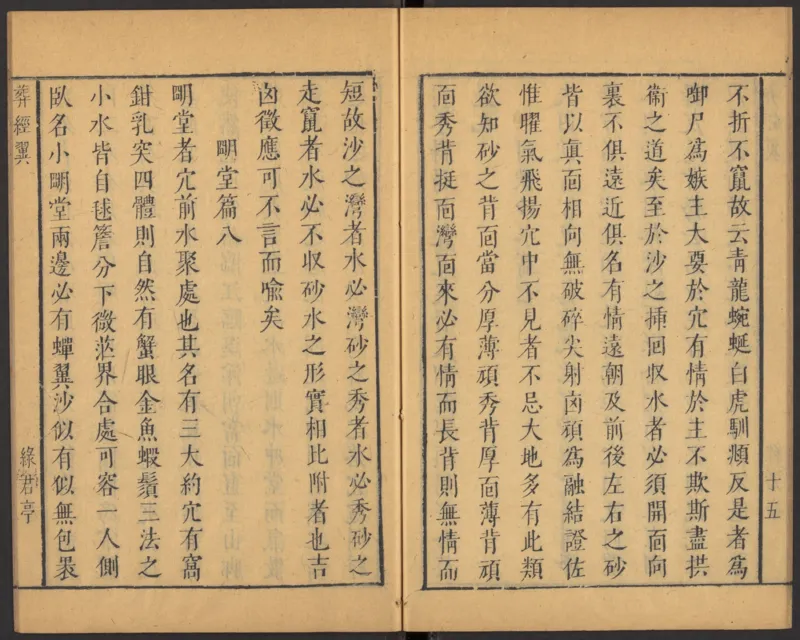 不折不竄故云青龍蜿蜒白虎馴頫反是者爲
啣尸爲嫉主大要於穴有情於主不欺斯盡拱
衞之道矣至於沙之揷回收水者必須開靣向
裏不俱遠近俱名有情遠朝及前後左右之砂
皆以眞靣相向無破碎尖射凶頑爲融結證佐
惟曜氣飛揚穴中不見者不忌大地多有此類
欲知砂之背靣當分厚薄頑秀背厚靣薄背頑
靣秀背挺靣灣靣來必有情而長背則無情而
十五
短故沙之灣者水必灣砂之秀者水必秀砂之
走竄者水必不收砂水之形實相比附者也吉
凶徵應可不言而喩矣
明堂篇八
明堂者穴前水聚處也其名有三大約穴有窩
鉗乳突四體則自然有蟹眼金魚蝦鬚三法之
小水皆自毬簷分下微茫界合處可容一人側
臥名小明堂兩邊必有蟬翼沙似有似無包褁
葬經翼
綠君亭